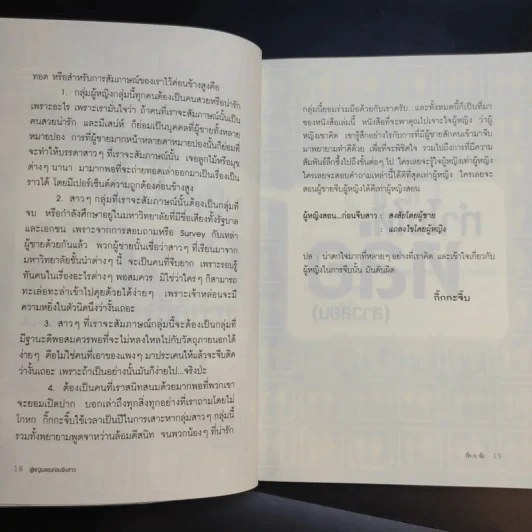 ทอด หรือสำหรับการสัมภาษณ์ของเราไว้ค่อนข้างสูงคือ
1. กลุ่มผู้หญิงกลุ่มนี้ทุกคนต้องเป็นคนสวยหรือน่ารัก
เพราะอะไร เพราะเรามั่นใจว่า ถ้าคนที่เราจะสัมภาษณ์นั้นเป็น
คนสวยน่ารัก และมีเสน่ห์ ก็ย่อมเป็นบุคคลที่ผู้ชายทั้งหลาย
หมายปอง การที่ผู้ชายมากหน้าหลายตาหมายปองนั้นก็ย่อมที่
จะทำให้บรรดาสาวๆ ที่เราจะสัมภาษณ์นั้น เจอลูกไม้หรือมุข
ต่างๆ นานา มามากพอที่จะถ่ายทอดเล่าออกมาเป็นเรื่องเป็น
ราวได้ โดยมีเปอร์เซ็นต์ความถูกต้องค่อนข้างสูง
2. สาวๆ กลุ่มที่เราจะสัมภาษณ์นั้นต้องเป็นกลุ่มที่
จบ หรือกำลังศึกษาอยู่ในมหาวิทยาลัยที่มีชื่อเสียงทั้งรัฐบาล
และเอกชน เพราะจากการสอบถามหรือ Survey กับเหล่า
ผู้ชายด้วยกันแล้ว พวกผู้ชายนั้นเชื่อว่าสาวๆ ที่เรียนมาจาก
มหาวิทยาลัยชั้นนำต่างๆ นี้ จะเป็นคนที่จีบยาก เพราะรอบรู้
ทันคนในเรื่องอะไรต่างๆ พอสมควร มิใช่ว่าใครๆ ก็สามารถ
ทะเล่อทะล่าเข้าไปคุยด้วยได้ง่ายๆ เพราะเจ้าหล่อนจะมี
ความหยิ่งในตัวนิดนึงว่างั้นเถอะ
3. สาวๆ ที่เราจะสัมภาษณ์กลุ่มนี้จะต้องเป็นกลุ่มที่
มีฐานะดีพอสมควรพอที่จะไม่หลงใหลไปกับวัตถุภายนอกได้
ง่ายๆ คือไม่ใช่คนที่เอาของแพงๆ มาประเคนให้แล้วจะจีบติด
ว่างั้นเถอะ เพราะถ้าเป็นอย่างนั้นมันก็ง่ายไป...จริงปะ
4. ต้องเป็นคนที่เราสนิทสนมด้วยมากพอที่พวกเขา
จะยอมเปิดปาก บอกเล่าถึงทุกสิ่งทุกอย่างที่เราถามโดยไม่
โกหก กิ๊กกะจิ๊บใช้เวลาเป็นปีในการเสาะหากลุ่มสาวๆ กลุ่มนี้
รวมทั้งพยายามพูดจาหว่านล้อมตีสนิท จนพวกน้องๆ ที่น่ารัก
18 ผู้หญิงสอนก่อนจีบสาว
กลุ่มนี้ยอมร่วมมือด้วยกับเราครับ และทั้งหมดนี้ก็เป็นที่มา
ของหนังสือเล่มนี้ หนังสือที่จะพาคุณไปเจาะใจผู้หญิง ว่าผู้
หญิงเขาคิด เขารู้สึกอย่างไรกับการที่มีผู้ชายสักคนเข้ามาจีบ
มาพยายามทำดีด้วย เพื่อที่จะพิชิตใจ รวมไปถึงการที่มีความ
สัมพันธ์ลึกซึ้งไปถึงขั้นต่อๆ ไป ใครเลยจะรู้ใจผู้หญิงเท่าผู้หญิง
ใครเลยจะตอบคำถามเหล่านี้ได้ดีที่สุดเท่าผู้หญิง ใครเลยจะ
สอนผู้ชายจีบผู้หญิงได้ดีเท่าผู้หญิงสอน
ผู้หญิงสอน...ก่อนจีบสาว : สงสัยโดยผู้ชาย
: แถลงไขโดยผู้หญิง
ปล : น่าตกใจมากที่หลายๆ อย่างที่เราคิด และเข้าใจเกี่ยวกับ
ผู้หญิงในการจีบนั้น มันดันผิด
กิ๊กกะจิ๊บ
19